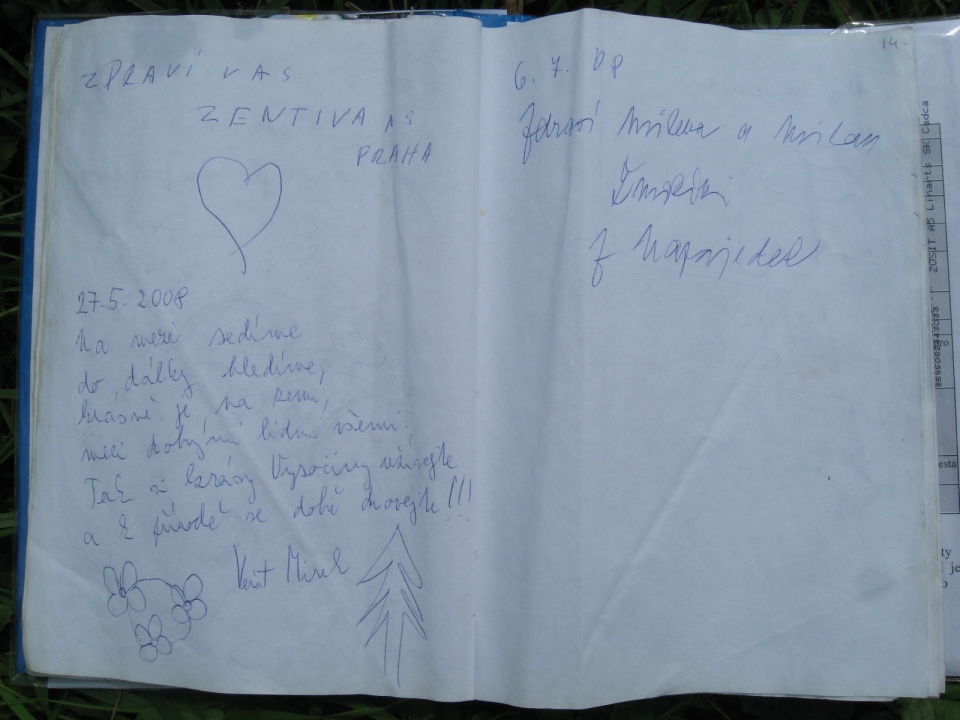 ZPRAVÍ VAS
ZENTIVA AS.
PRAHA
27.5. 2008
Na mezi sedíme
do dálky hledíme,
krásně je na zemi,
mezi dobrými lidmi všemi.
Tak si krásy Vysočiny užívejte
a k přírodě se dobře chovejte!!!
Mirek
14.
6. 7. 08
Zdraví Milena a Milan
z Napajedel
ZOSIT A5 Linarts SK Čadca